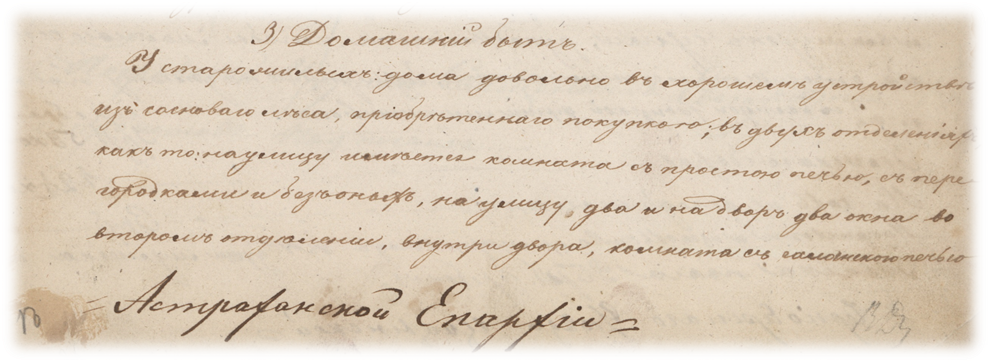 3) Домашній бытъ.
У старожилыхъ: дома довольно въ хорошемъ устройствѣ
изъ сосноваго лѣса, пріобрѣтеннаго покупкою; въ двухъ отдѣленіях
какъ то: на улицу имѣется комната съ простою печью, съ пере
городками и безъ оныхъ, на улицу два и на дворъ два окна во
второмъ отдѣленіи, внутри двора, комната съ голанскою печью
= Астраханской Епархіи =